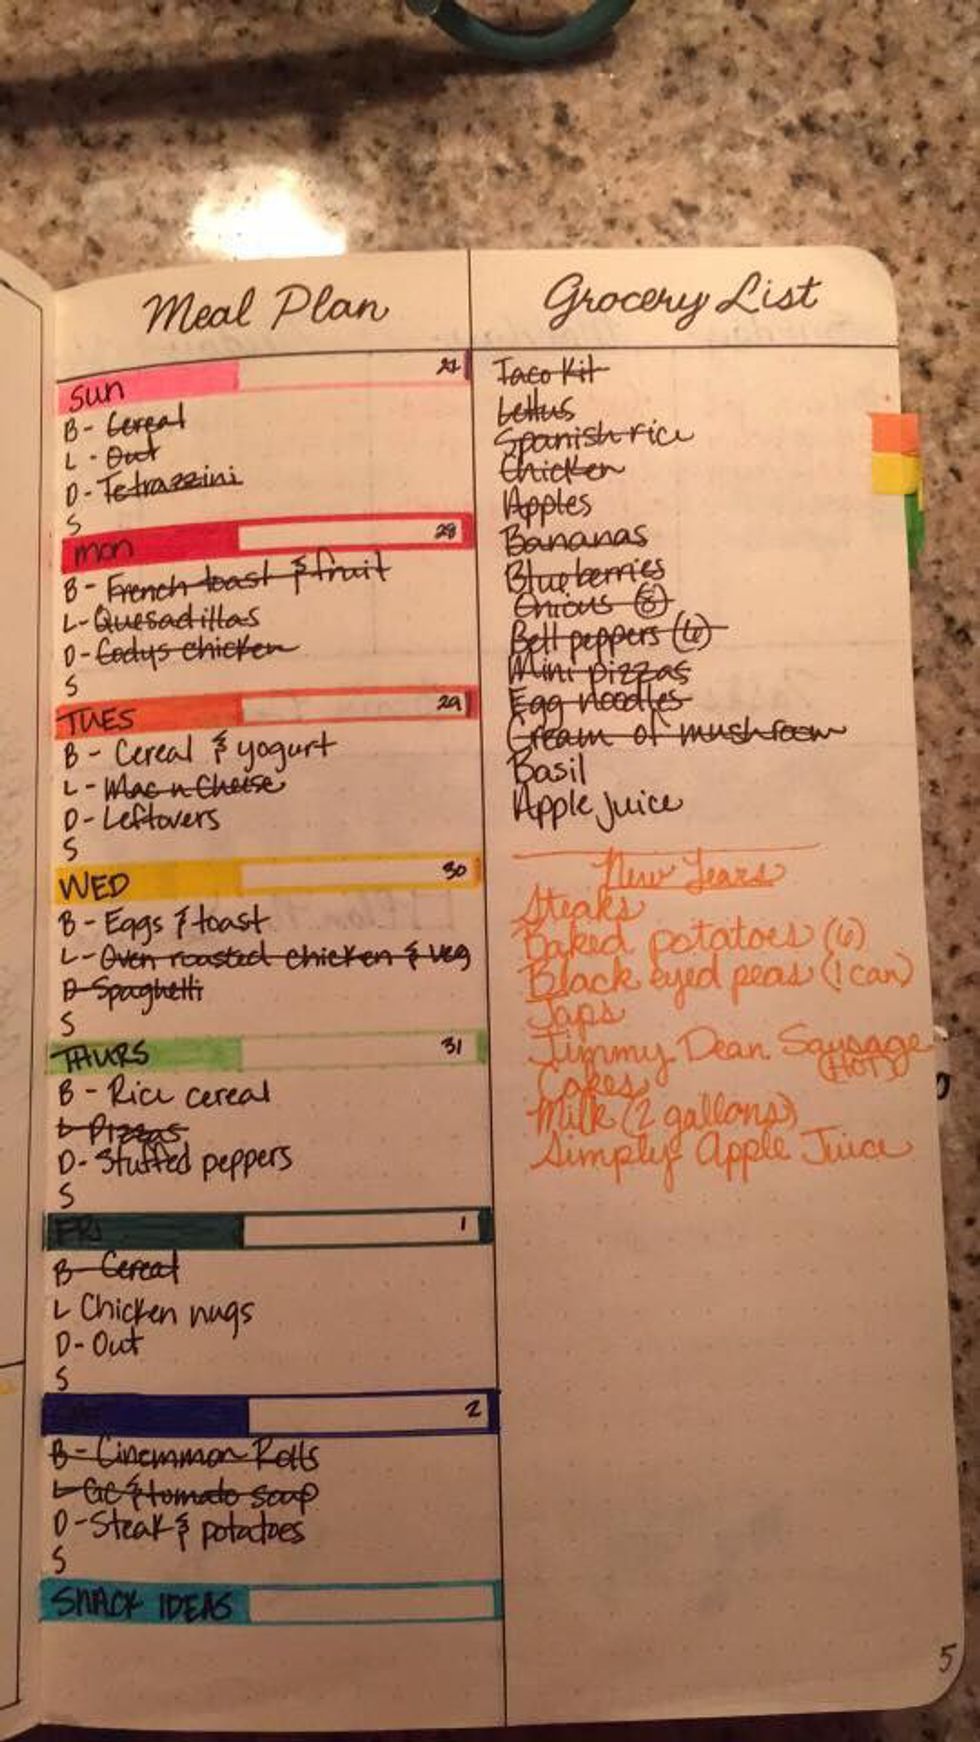 Meal Plan
SUN 27
B- Cereal
L - Out
D- Tetrazzini
S
mon 28
B- French toast & fruit
L- Quesadillas
D- Codys chicken
S
TUES 29
B - Cereal & yogurt
L - Mac n Cheese
D- Leftovers
S
WED 30
B - Eggs & toast
L- Oven roasted chicken & veg
D- Spaghetti
S
THURS 31
B - Rice cereal
L- Pizzas
D- Stuffed peppers
S
FRI 1
B- Cereal
L Chicken nugs
D- Out
S
2
B- Cinammon Rolls
L- GC & tomato soup
D- Steak & potatoes
S
SNACK IDEAS
Grocery List
Taco Kit
Lettus
Spanish rice
Chicken
Apples
Bananas
Blueberries
Onions (8)
Bell peppers (6)
Mini pizzas
Egg noodles
Cream of mushroom
Basil
Apple juice
New Years
Steaks
Baked potatoes (6)
Black eyed peas (1 can)
Japs
Jimmy Dean Sausage
(HOT)
Cokes
Milk (2 gallons)
Simply Apple Juice
5